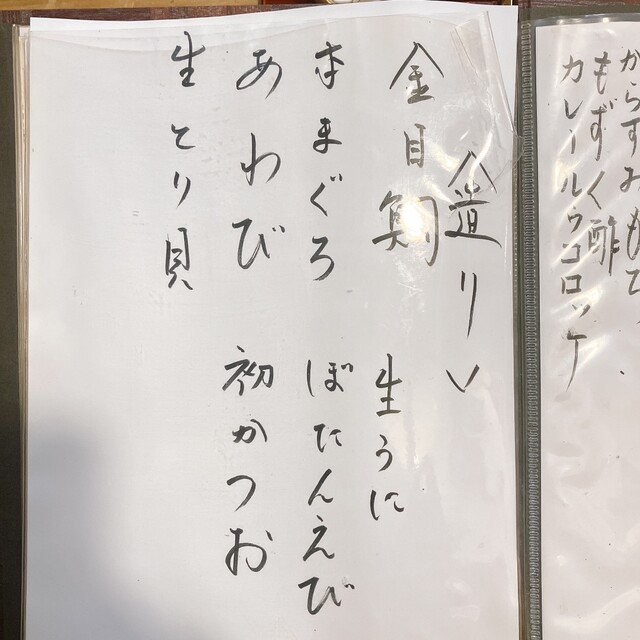 からすみ
もずく酢
カレールゥコロッケ
〈造り〉
金目鯛 生うに
本まぐろ ぼたんえび
あわび 初かつお
生とり貝